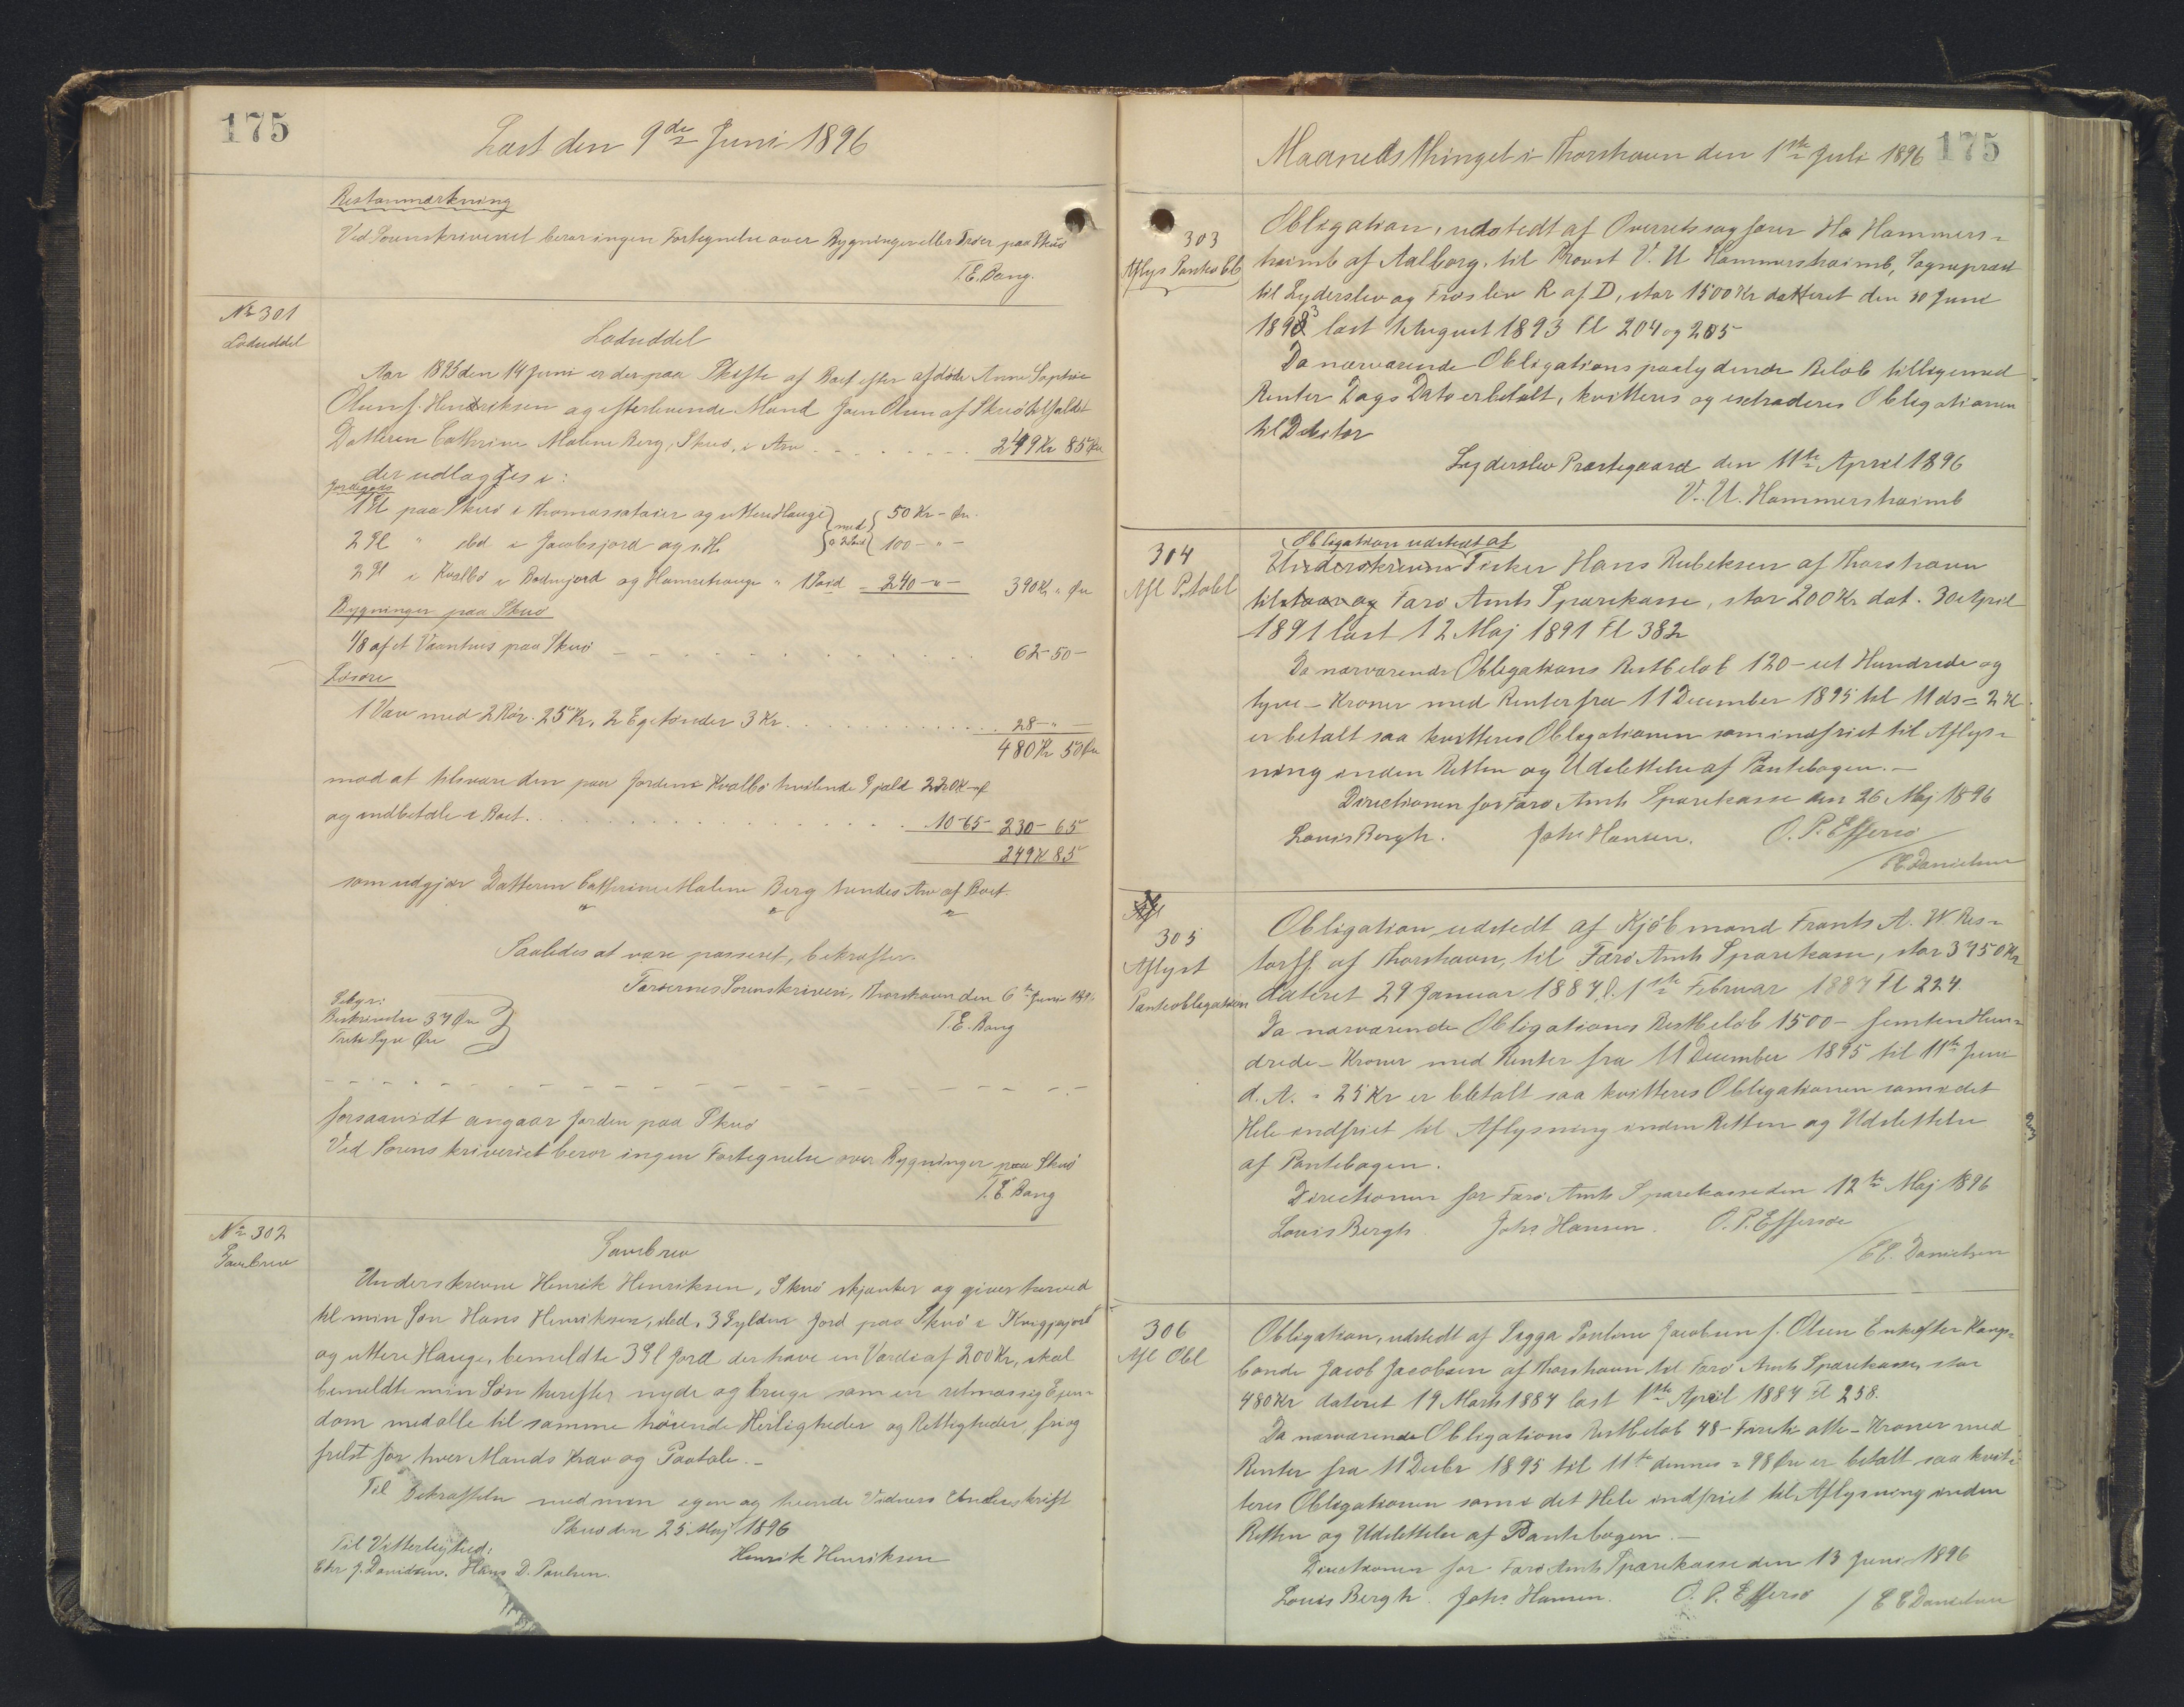 175
Læst den 9de Juni 1896
Retsanmærkning
Ved Sorenskriveriet beror ingen Fortegnelse over Bygninger eller Træer paa Skuø
T. E. Bang.
No 301
Lodseddel
Lodseddel
Aar 1895 den 14 Juni er der paa Skifte af Boet efter afdøde Anne Sophie
Olsen f. Hendriksen og efterlevende Mand Joen Olsen af Skuø tilfaldet
Datteren Cathrine Malene Berg, Skuø, i Arv 249 Kr 85 Øre
der udlægges i:
Jordegods
1 Gl paa Skuø i Thomassataier og uttere Hauge } med { 50 Kr - Øre
2 Gl " ibd i Jacobsjord og s. H. 100 - " -
2 Gl i Kvalbø i Bodnajord og Hamrehauge " 1 Soid - 240 - " - 390 Kr " Øre
Bygninger paa Skuø
1/8 af et Vaanhus paa Skuø 62 - 50 -
Løsøre
1 Væv med 2 Rör. 25 Kr, 2 Egetønder 3 Kr. 28 - " -
480 Kr 50 Øre
mod at tilsvare den paa Jorden i Kvalbø hvilende Gjæld 220 Kr
og indbetale i Boet 10-65 230 - 65
249 Kr 85
som udgjør Datteren Cathrine Malene Berg hendes Arv af Boet.
Saaledes at være passeret, bekræftes.
Færøernes Sorenskriveri, Thorshavn den 6te Juni 1896
T. E. Bang
Gebyr:
Beskrivelse 37 Øre
Treti Syv Øre
forsaavidt angaar Jorden paa Skuø
Ved Sorenskriveriet beror ingen Fortegnelse over Bygninger paa Skuø
T. E. Bang
No 302
Gavebrev
Gavebrev
Underskrevne Henrik Henriksen, Skuø skjænker og giver herved
til min Søn Hans Henriksen, ibd. 3 Gylden Jord paa Skuø i
og uttere Hauge, bemeldte 3 Gl Jord der have en Værdi af 200 Kr, skal
bemeldte min Søn herefter nyde og bruge som en retmæssig Ejen-
dom med alle til samme hørende Herligheder og Rettigheder, fri og
frelst for hver Mands Krav og Paatale. -
Til Bekræftelse med min egen og tvende Vidners Underskrift
Skuø den 25 Maj 1896
Henrik Henriksen
Til Vitterlighed:
J. Davidsen. Hans D. Poulsen.
Maanedsthinget i Thorshavn den 1ste Juli 1896
175
303
Aflys Panteobl
Obligation, udstedt af Overretssagfører Ha Hammers-
haimb af Aalborg, til Provst V. U. Hammershaimb, Sognepræst
til Lyderslev og Frøslev R af D, stor 1500 Kr dateret den 30 Juni
1893 læst 1 August 1893 Fl 204 og 205
Da nærværende Obligations paalydende Beløb tilligemed
Renter Dags Dato er betalt, kvitteres og extraderes Obligationen
til Debitor
Lyderslev Præstegaard den 11te April 1896
V. U. Hammershaimb
304
Afl P. tobl
Obligation udstedt af
Underskrevne Fisker Hans Rubeksen af Thorshavn
tilstaar og Færø Amts Sparekasse, stor 200 Kr dat. 30 April
1891 læst 12 Maj 1891 Fl 382
Da nærværende Obligations Restbeløb 120 - et Hundrede og
tyve - Kroner med Renter fra 11 December 1895 til 11 ds = 2 Kr
er betalt saa kvitteres Obligationen som indfriet til Aflys-
ning inden Retten og Udslettelse af Pantebogen. -
Directionen for Færø Amts Sparekasse den 26 Maj 1896
Louis Bergh. Johs Hansen. O. P. Effersø
/ E E Danielsen
305
Aflyst
Panteobligation
Obligation udstedt af Kjøbmand Frants A. W. Res-
torff af Thorshavn, til Færø Amts Sparekasse, stor 3750 Kr
dateret 29 Januar 1887 l. 1ste Februar 1887 Fl 224.
Da nærværende Obligations Restbeløb 1500 - femten Hun-
drede - Kroner med Renter fra 11 December 1895 til 11te Juni
d. A. = 25 Kr er betalt saa kvitteres Obligationen som i det
Hele indfriet til Aflysning inden Retten og Udslettelse
af Pantebogen.
Directionen for Færø Amts Sparekasse den 12te Maj 1896
Louis Bergh Johs Hansen. O. P. Effersøe
/ E E. Danielsen
306
Afl Obl
Obligation, udstedt af Sigga Pouline Jacobsen f. Olsen Enke efter Kongs-
bonde Jacob Jacobsen af Thorshavn til Færø Amts Sparekasse, stor
480 Kr dateret 19 Marts 1884 læst 1ste April 1884 Fl 258.
Da nærværende Obligations Restbeløb 48 - Firreti otte - Kroner med
Renter fra 11 Decbr 1895 til 11te dennes = 98 Øre er betalt saa kvit-
teres Obligationen som i det Hele indfriet til Aflysning inden
Retten og Udslettelse af Pantebogen. -
Directionen for Færø Amts Sparekasse den 13 Juni 1896
Louis Bergh. Johs Hansen. O. P. Effersø / E E Danielsen